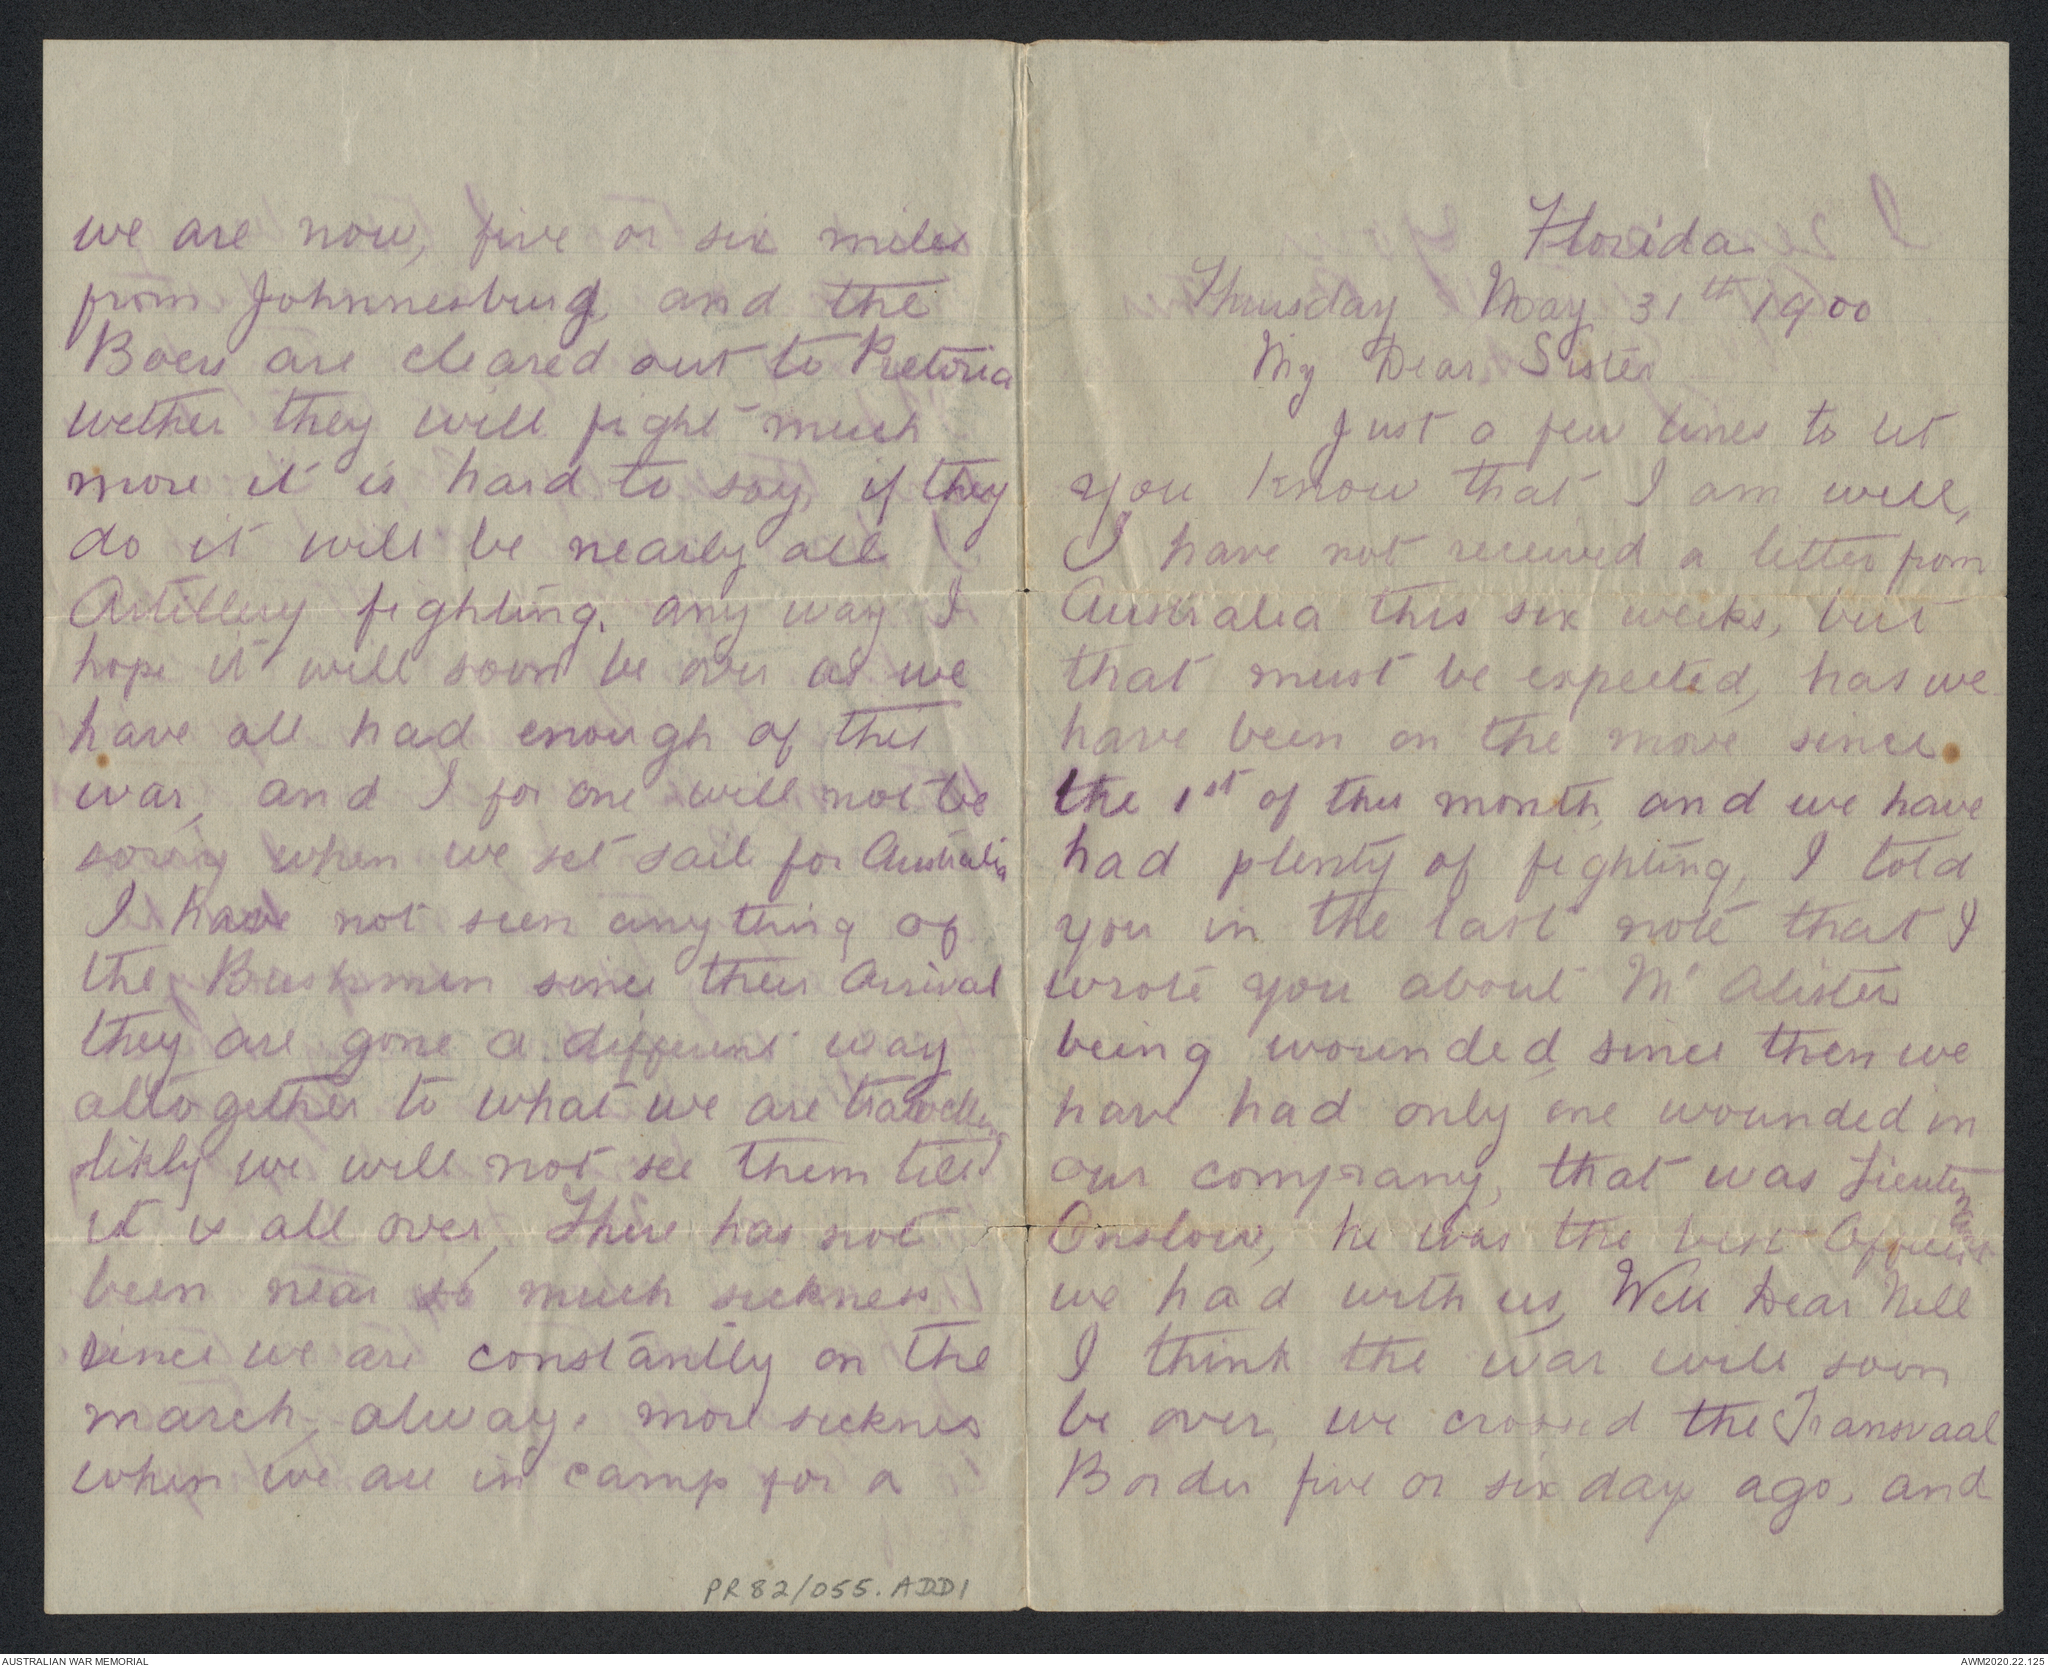 Florida
Thursday May 31th 1900
My Dear Sister
Just a few lines to let
you know that I am well,
I have not received a letter from
Australia this six weeks, but
that must be expected, has we
have been on the move since
the 1st of this month, and we have
had plenty of fighting, I told
you in the last note that I
wrote you about Mc Alister
being wounded, since then we
have had only one wounded in
our comprany, that was Lieutenant
Onslow, he was the best Officer
we had with us, Well Dear Nell
I think the war will soon
be over, we crossed the Transvaal
Border five or six days ago, and
we are now, five or six miles
from Johnnesburg, and the
Boers are cleared out to Pretoria
wether they will fight much
more it is hard to say, if they
do it will be nearly all
Artillery fighting. any way I
hope it will soon be over as we
have all had enough of this
war, and I for one will not be
sorry when we set sail for Australia
I have not seen anything of
the Bushmen since their Arrival
they are gone a different way
altogether to what we are travelling
likly we will not see them till
it is all over, There has not
been near so much sickness
since we are constantly on the
march, always more sicknes
when we are in camp for a
PR82/055.ADD1
AUSTRALIAN WAR MEMORIAL
AWM2020.22.125